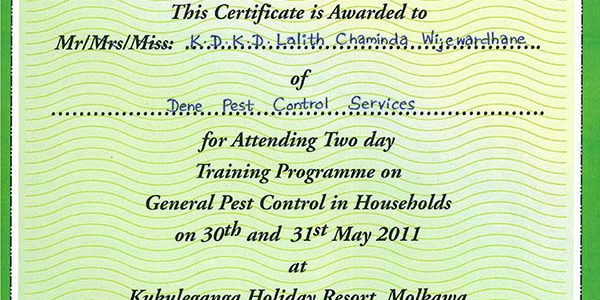 This Certificate is Awarded to
Mr/Mrs/Miss: K.D.K.D. Lalith Chaminda Wijewardhane
of
Dene Pest Control Services
for Attending Two day
Training Programme on
General Pest Control in Households
on 30th and 31st May 2011
at
Kukuleganga Holiday Resort, Molkawa